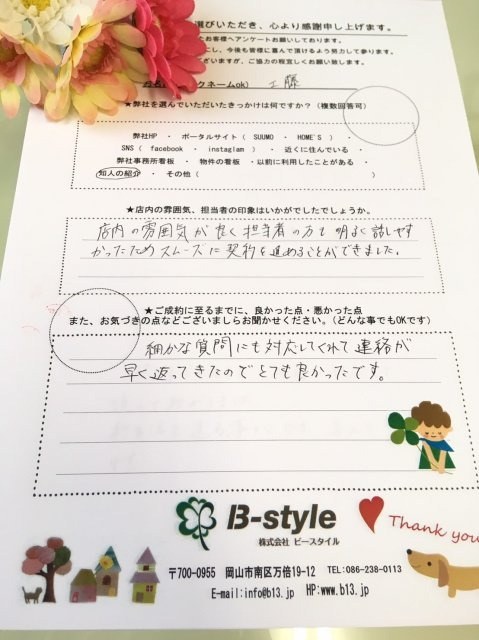 選びいただき、心より感謝申し上げます。
お客様へアンケートお願いしております。
にし、今後も皆様に喜んで頂けるよう努力して参ります。
ございますが、ご協力の程宜しくお願い致します。
クネームok) 工藤
★弊社を選んでいただいたきっかけは何ですか?(複数回答可)
弊社HP ・ ポータルサイト( SUUMO ・ HOME'S ) ・
SNS( facebook ・ instaglam ) ・ 近くに住んでいる ・
弊社事務所看板 ・ 物件の看板 ・以前に利用したことがある ・
知人の紹介 ・ その他( )
★店内の雰囲気、担当者の印象はいかがでしたでしょうか。
店内の雰囲気が良く担当者の方も明るく話しやす
かったためスムーズに契約を進めることができました。
★ご成約に至るまでに、良かった点・悪かった点
また、お気づきの点などございましらお聞かせください。(どんな事でもOKです)
細かな質問にも対応してくれて連絡が
早く返ってきたのでとても良かったです。
B-style
株式会社 ビースタイル
Thank you
〒700-0955 岡山市南区万倍19-12 TEL:086-238-0113
E-mail:info@b13.jp HP:www.b13.jp